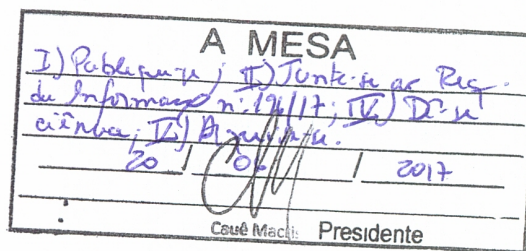 A MESA
I) Publique-se; II) Junte-se ao Req.
de Informação nº 196/17; IV) Dê-se
ciência; V) Arquive-se.
20 / 06 / 2017
Cauê Macris Presidente